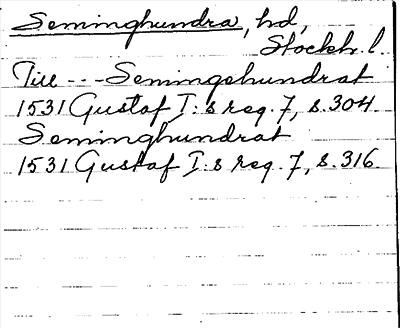 Seminghundra, hd,
Stockh. l.
Till --- Semingehundrat
1531 Gustaf I:s reg. 7, s. 304.
Seminghundrat
1531 Gustaf I:s reg. 7, s. 316.